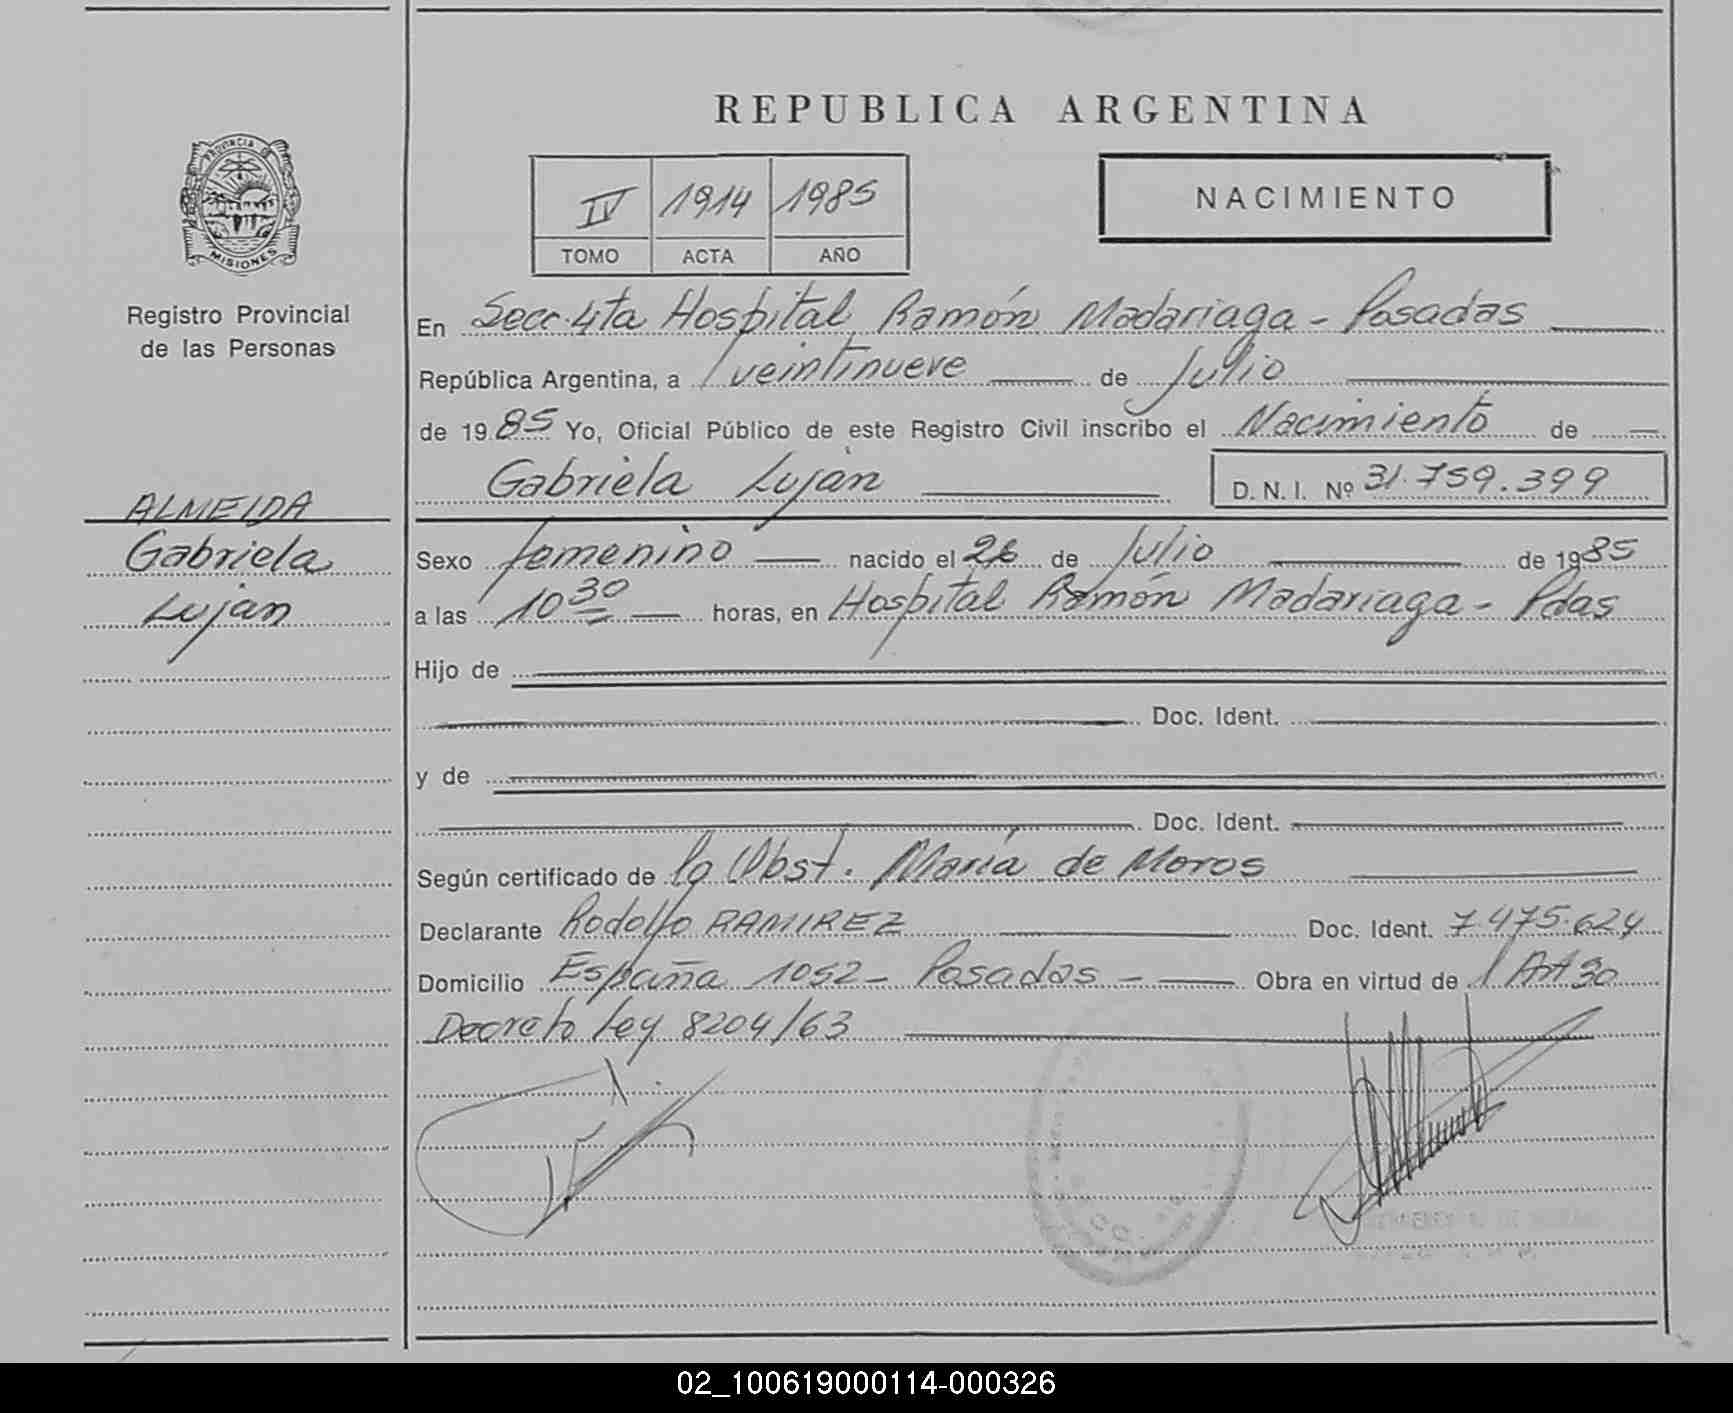 REPUBLICA ARGENTINA
PROVINCIA DE
MISIONES
Registro Provincial
de las Personas
IV 1914 1985
TOMO ACTA AÑO
NACIMIENTO
En Secc. 4ta Hospital Ramón Madariaga - Posadas
República Argentina, a veintinueve de Julio
de 1985 Yo, Oficial Público de este Registro Civil inscribo el Nacimiento de
Gabriela Luján D.N.I. Nº 31.759.399
ALMEIDA
Gabriela
Luján
Sexo femenino nacido el 26 de Julio de 1985
a las 10 30 horas, en Hospital Ramón Madariaga - Pdas
Hijo de
Doc. Ident.
y de
Doc. Ident.
Según certificado de la Obst. María de Moros
Declarante Rodolfo RAMIREZ Doc. Ident. 7.475.624
Domicilio España 1052 - Posadas - Obra en virtud de Art 30
Decreto Ley 8204/63
02_100619000114-000326